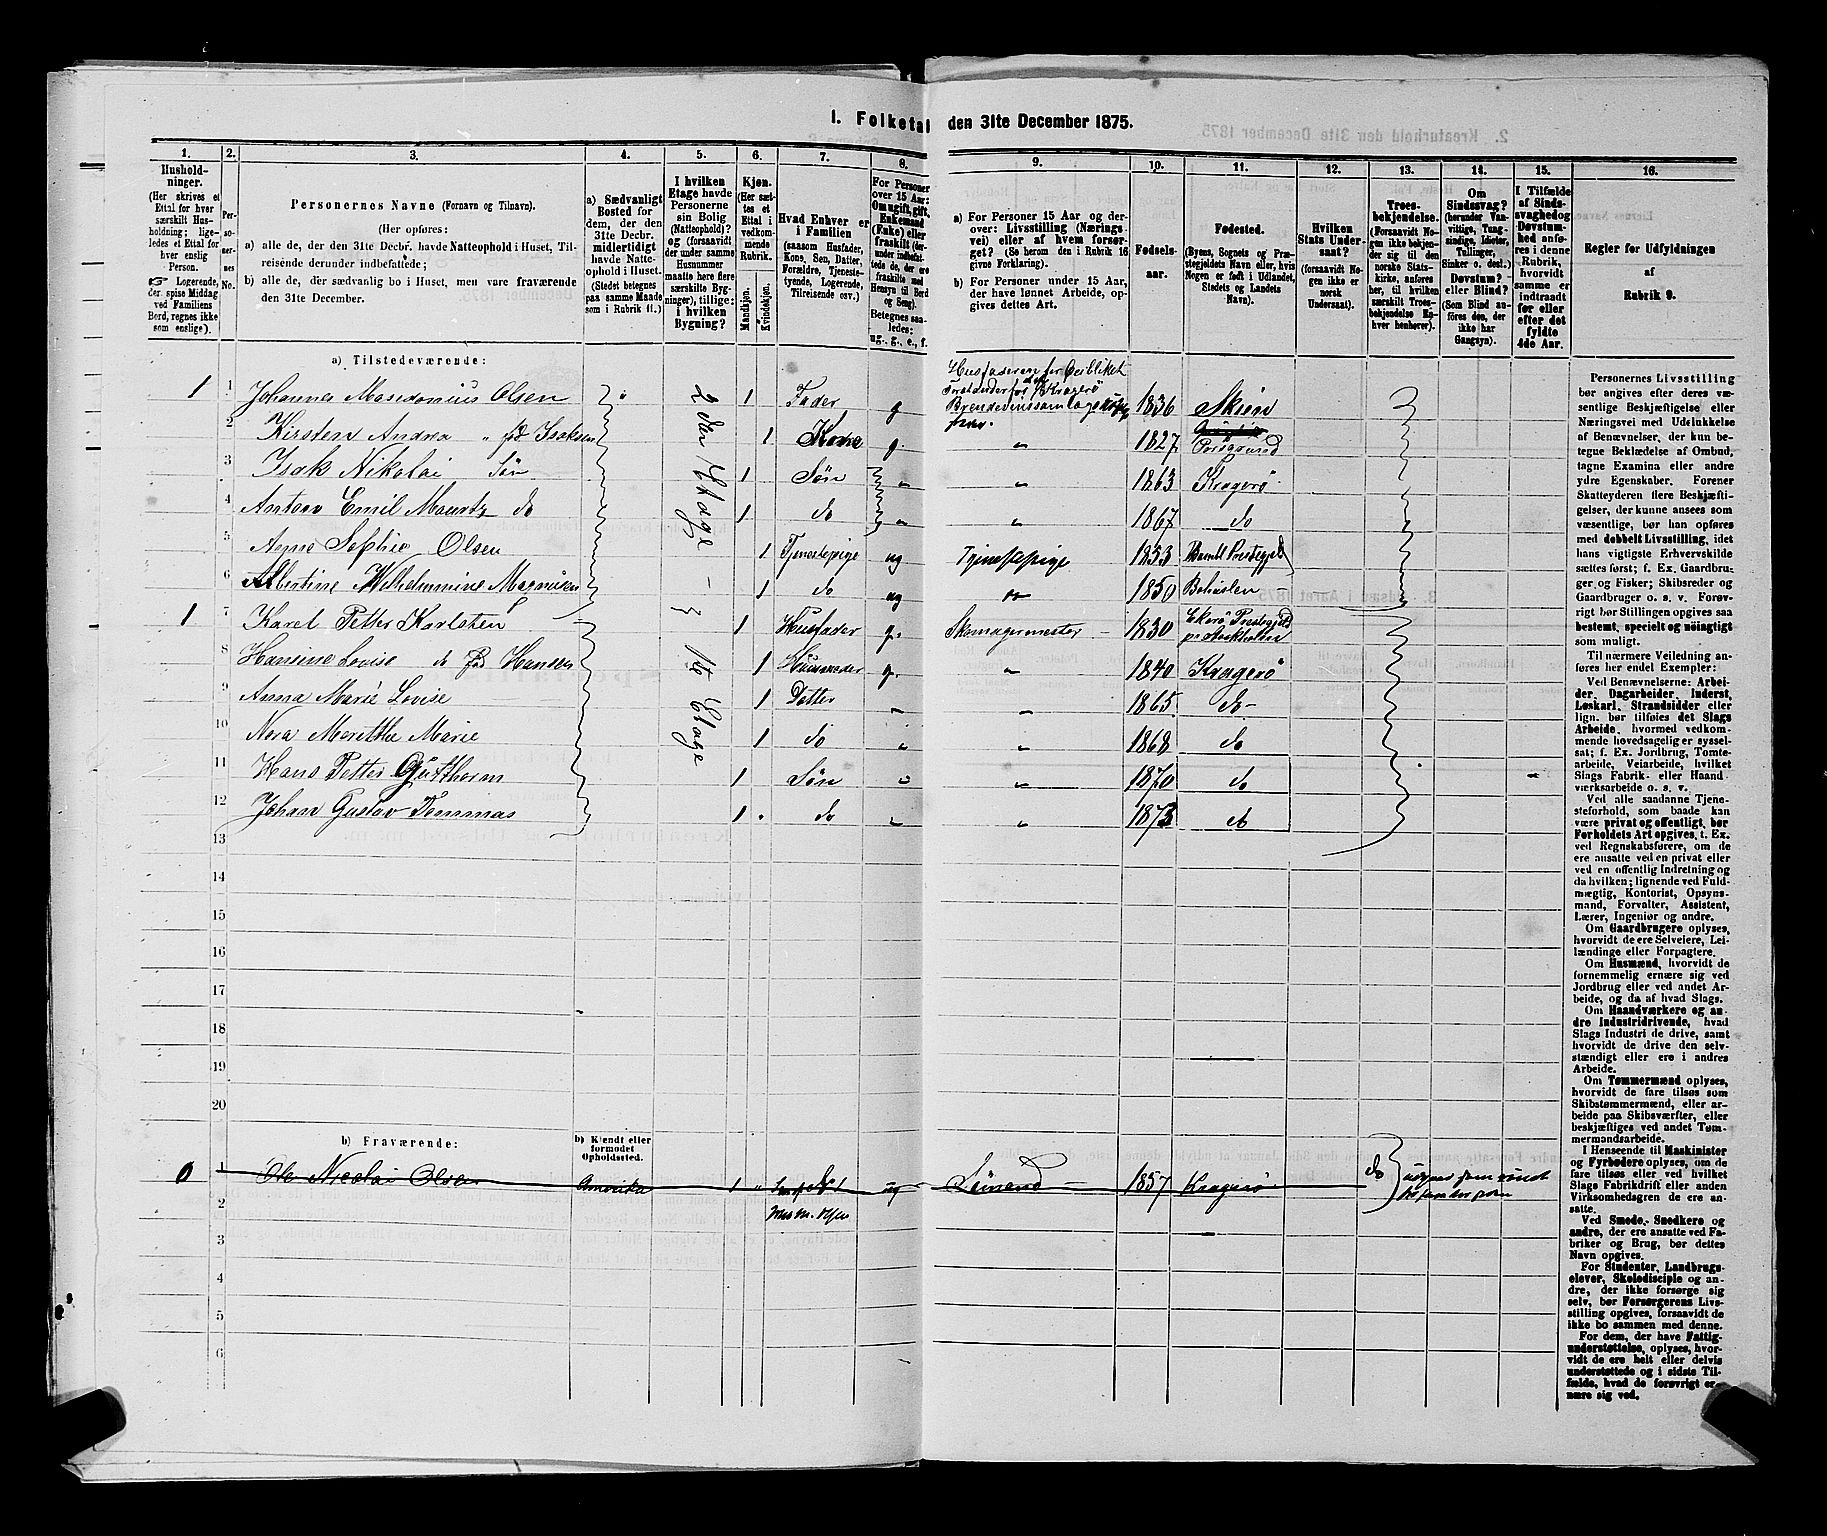 1. Folketal den 31te December 1875.
1.
2.
3.
4.
5.
6.
7.
8.
9.
10.
11.
12.
13.
14.
15.
16.
Hushold-
ninger.
(Her skrives et
Ettal for hver
særskilt Hus-
holdning; lige-
ledes et Ettal for
hver enslig
Person.
☞ Logerende,
der spise Middag
ved Familiens
Bord, regnes ikke
som enslige).
Per-
so-
ner-
nes
No.
Personernes Navne (Fornavn og Tilnavn).
(Her opføres:
a) alle de, der den 31te Decbr. havde Natteophold i Huset, Til-
reisende derunder indbefattede;
b) alle de, der sædvanlig bo i Huset, men vare fraværende
den 31te December.
a) Sædvanligt
Bosted for
dem, der den
31te Decbr.
midlertidigt
havde Natte-
ophold i Huset.
(Stedet betegnes
paa samme Maade
som i Rubrik 11.)
I hvilken
Etage havde
Personerne
sin Bolig
(Natteophold)?
og (forsaavidt
der under samme
Husnummer
maatte flere
særskilte Byg-
ninger), tillige:
i hvilken
Bygning?
Kjøn.
(Her sæt-
tes et
Ettal i
vedkom-
mende
Rubrik.
Mandkjøn.
Kvindekjøn.
Hvad Enhver er
i Familien
(saasom Husfader,
Kone, Søn, Datter,
Forældre, Tjeneste-
tyende, Logerende,
Tilreisende osv.)
For Personer
over 15 Aar:
Om ugift, gift,
Enkemand
(Enke) eller
fraskilt (der-
under indbefat-
tede de, der ere
fraskilte med
Hensyn til Bord
og Seng).
Betegnes saa-
ledes:
ug., g., e., f.
a) For Personer 15 Aar og der-
over: Livsstilling (Nærings-
vei) eller af hvem forsør-
get? (Se herom den i Rubrik 16
givne Forklaring).
b) For Personer under 15 Aar,
der have lønnet Arbeide, op-
gives dettes Art.
Fødsels-
aar.
Fødested.
(Byens, Sognets og Præ-
stegjeldets Navn eller, hvis
Nogen er født i Udlandet,
Stedets og Landets
Navn).
Hvilken
Stats Under-
saat?
(forsaavidt No-
gen ikke er
norsk
Undersaat).
Troes-
bekjendelse.
(Forsaavidt No-
gen ikke bekjen-
der sig til den
norske Stats-
kirke, anføres
her, til hvilken
særskilt Troes-
bekjendelse En-
hver henhører).
Om
Sindssvag?
(herunder Van-
vittige, Tung-
sindige, Idioter,
Tullinger,
Sinker o. desl.)
Døvstum?
eller Blind?
(Som Blind an-
føres den, der
ikke har
Gangsyn).
I Tilfælde
af Sinds-
svaghed og
Døvstum-
hed anfø-
res i denne
Rubrik,
hvorvidt
samme er
indtraadt
før eller
efter det
fyldte
4de Aar.
Regler for Udfyldningen
af
Rubrik 9.
a) Tilstedeværende:
1 1 Johannes Masedonius Olsen 1 Fader g
1836 Skien
2 Kirsten Andrea " fød Isaksen 1 Kone g. " 1827 Porsgrund
3 Isak Nikolai Søn 1 Søn " " 1863 Kragerø
4 Anton Emil Mauritz do 1 do " " 1867 do
5 Agne Sophie Olsen 1 Tjenestepige ug Tjenestepige 1853 Bamble Prestegjeld
6 Albertine Wilhelmmine Magnusen 1 do ug " 1850 Bohuslen
7 1 Karel Petter Karlsten 1 Husfader g. Skomagermester 1830 Ekerö Prestegjeld
p. Stockholm
8 Hansine Lovise do fød Hansen 1 Husmoder g. " 1840 Kragerø
9 Anna Marie Lovise 1 Datter " " 1865 do
10 Nora Merethe Marie 1 do " " 1868 do
11 Hans Petter Guthorm 1 Søn " " 1870 do
12 Johan Gustav Tommas 1 do " " 1873 do
2den Etage
1ste Etage
13
14
15
16
17
18
19
20
b) Fraværende:
b) Kjendt eller
formodet
Opholdssted.
0 1 Ole Nicolai Olsen Amerika 1 " ug Sømand 1857 Kragerø do
2
3
4
5
6
Personernes Livsstilling
bør angives efter deres væ-
sentlige Beskjæftigelse eller
Næringsvei med Udelukkelse
af Benævnelser, der kun be-
tegne Beklædelse af Ombud,
tagne Examina eller andre
ydre Egenskaber. Forener
Skatteyderen flere Beskjæfti-
gelser, der kunne ansees som
væsentlige, bør han opføres
med dobbelt Livsstilling, idet
hans vigtigste Erhvervskilde
sættes først; f. Ex. Gaardbru-
ger og Fisker; Skibsreder og
Gaardbruger o. s. v. Forøv-
rigt bør Stillingen opgives saa
bestemt, specielt og nøiagtigt
som muligt.
Til nærmere Veiledning an-
føres her endel Exempler:
Ved Benævnelserne: Arbei-
der, Dagarbeider, Inderst,
Løskarl, Strandsidder eller
lign. bør tilføies det Slags
Arbeide, hvormed vedkom-
mende hovedsagelig er syssel-
sat; f. Ex. Jordbrug, Tomte-
arbeide, Veiarbeide, hvilket
Slags Fabrik- eller Haand-
værksarbeide o. s. v.
Ved alle saadanne Tjene-
steforhold, som baade kan
være privat og offentligt, bør
Forholdets Art opgives, t. Ex.
ved Regnskabsførere, om de
ere ansatte ved en privat eller
ved en offentlig Indretning og
da hvilken; lignende ved Fuld-
mægtig, Kontorist, Opsyns-
mand, Forvalter, Assistent,
Lærer, Ingeniør og andre.
Om Gaardbrugere oplyses,
hvorvidt de ere Selveiere, Lei-
lændinge eller Forpagtere.
Om Husmænd, hvorvidt de
fornemmelig ernære sig ved
Jordbrug eller ved andet Ar-
beide, og da af hvad Slags.
Om Haandværkere og an-
dre Industridrivende, hvad
Slags Industri de drive, samt
hvorvidt de drive den selv-
stændigt eller ere i andres
Arbeide.
Om Tømmermænd oplyses,
hvorvidt de fare tilsøs som
Skibstømmermænd, eller ar-
beide paa Skibsværfter, eller
beskjæftiges ved andet Tøm-
mermandsarbeide.
I Henseende til Maskinister
og Fyrbødere oplyses, om de
fare tilsøs eller ved hvilket
Slags Fabrikdrift eller anden
Virksomhed de ere an-
satte.
Ved Smede, Snedkere og
andre, der ere ansatte ved Fa-
briker og Brug, bør dettes
Navn opgives.
For Studenter, Landbrugs-
elever, Skoledisciple og an-
dre, der ikke forsørge sig
selv, bør Forsørgerens Livs-
stilling opgives, forsaavidt de
ikke bo sammen med denne.
For dem, der have Fattig-
understøttelse, oplyses, hvor-
vidt de ere helt eller delvis
understøttede og i sidste Til-
fælde, hvad de forøvrigt er-
nære sig ved.